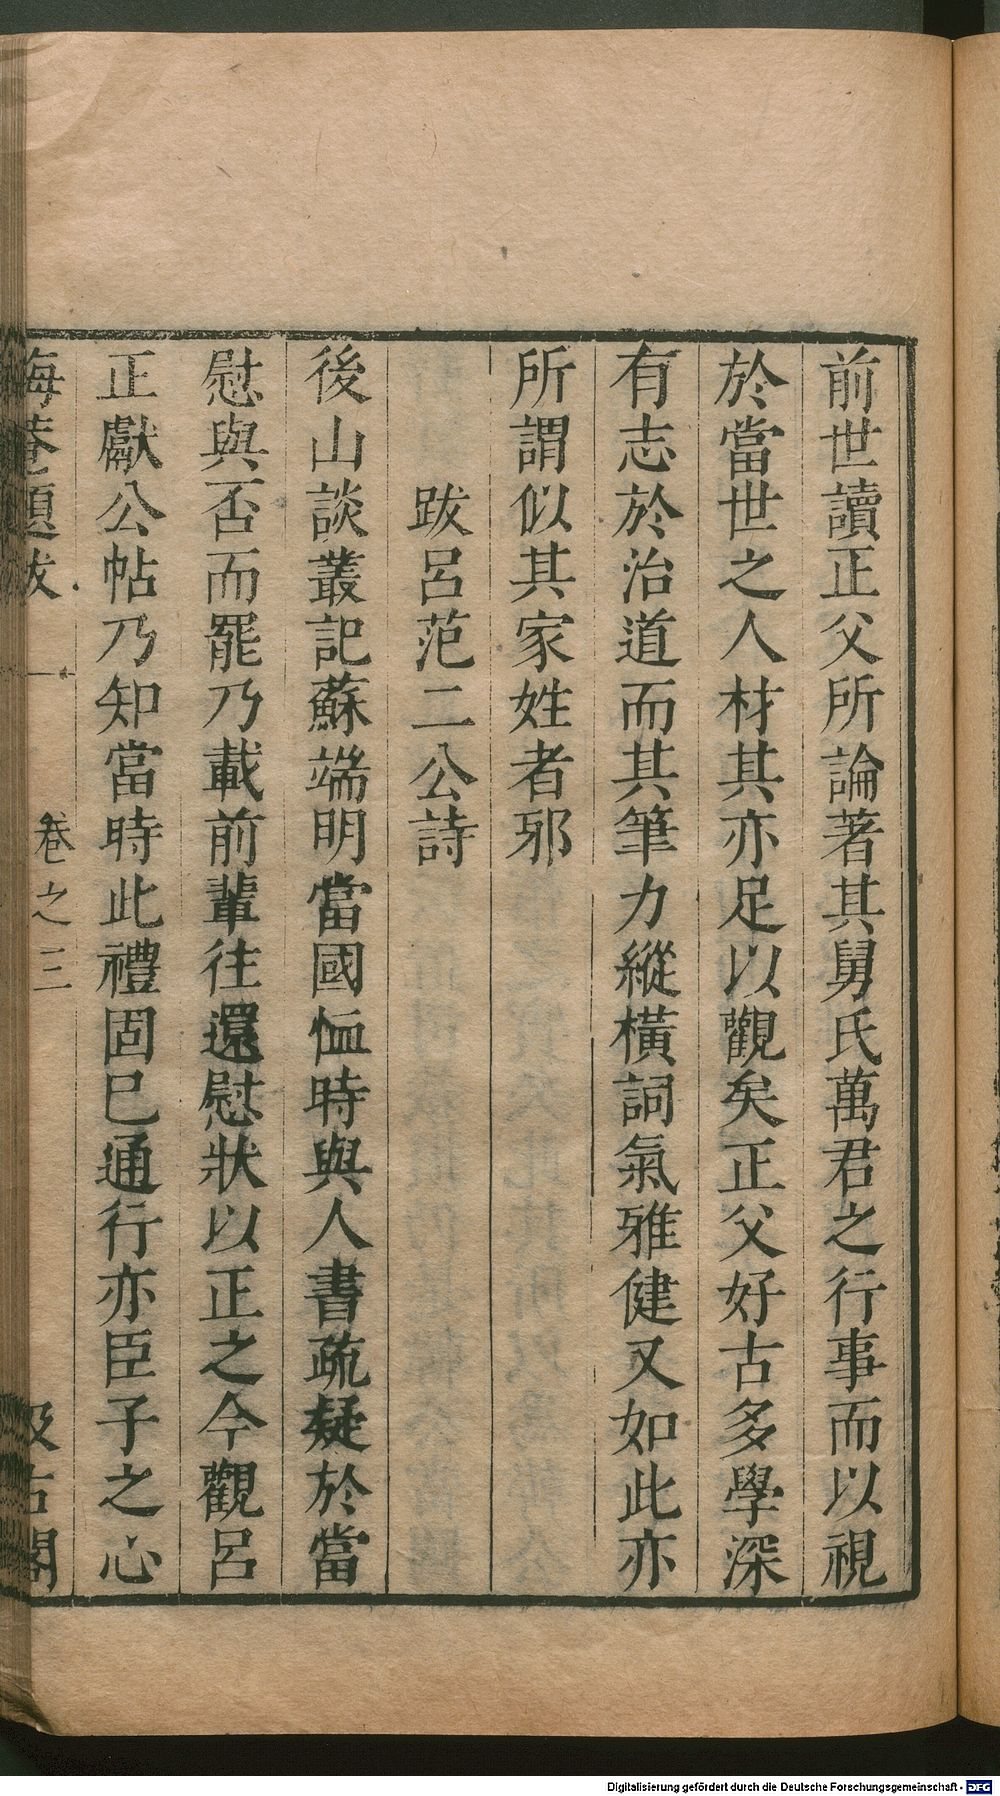 前世讀正父所論著其舅氏萬君之行事而以視
於當世之人材其亦足以觀矣正父好古多學深
有志於治道而其筆力縱橫詞氣雅健又如此亦
所謂似其家姓者邪
跋呂范二公詩
後山談叢記蘇端明當國恤時與人書疏疑於當
慰與否而罷乃載前輩往還慰狀以正之今觀呂
正獻公帖乃知當時此禮固巳通行亦臣子之心
海菴題跋 卷之三 汲古閣
Digitalisierung gefördert durch die Deutsche Forschungsgemeinschaft - DFG